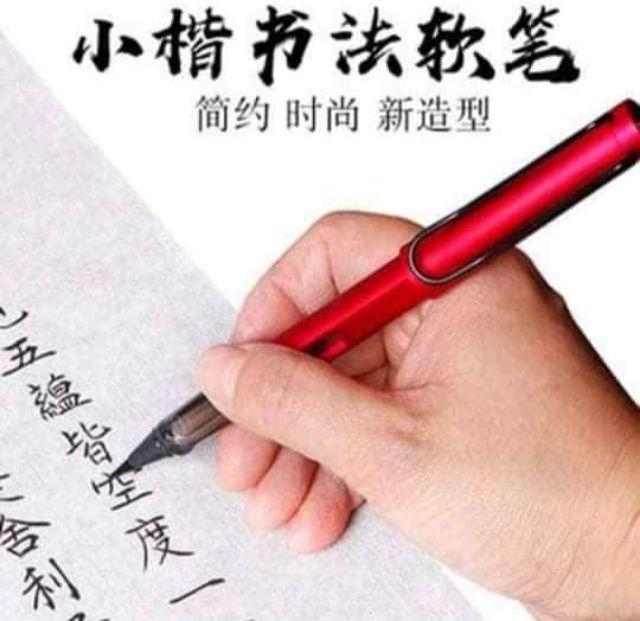 小楷书法软笔
简约 时尚 新造型
五蘊皆空度一
舍利